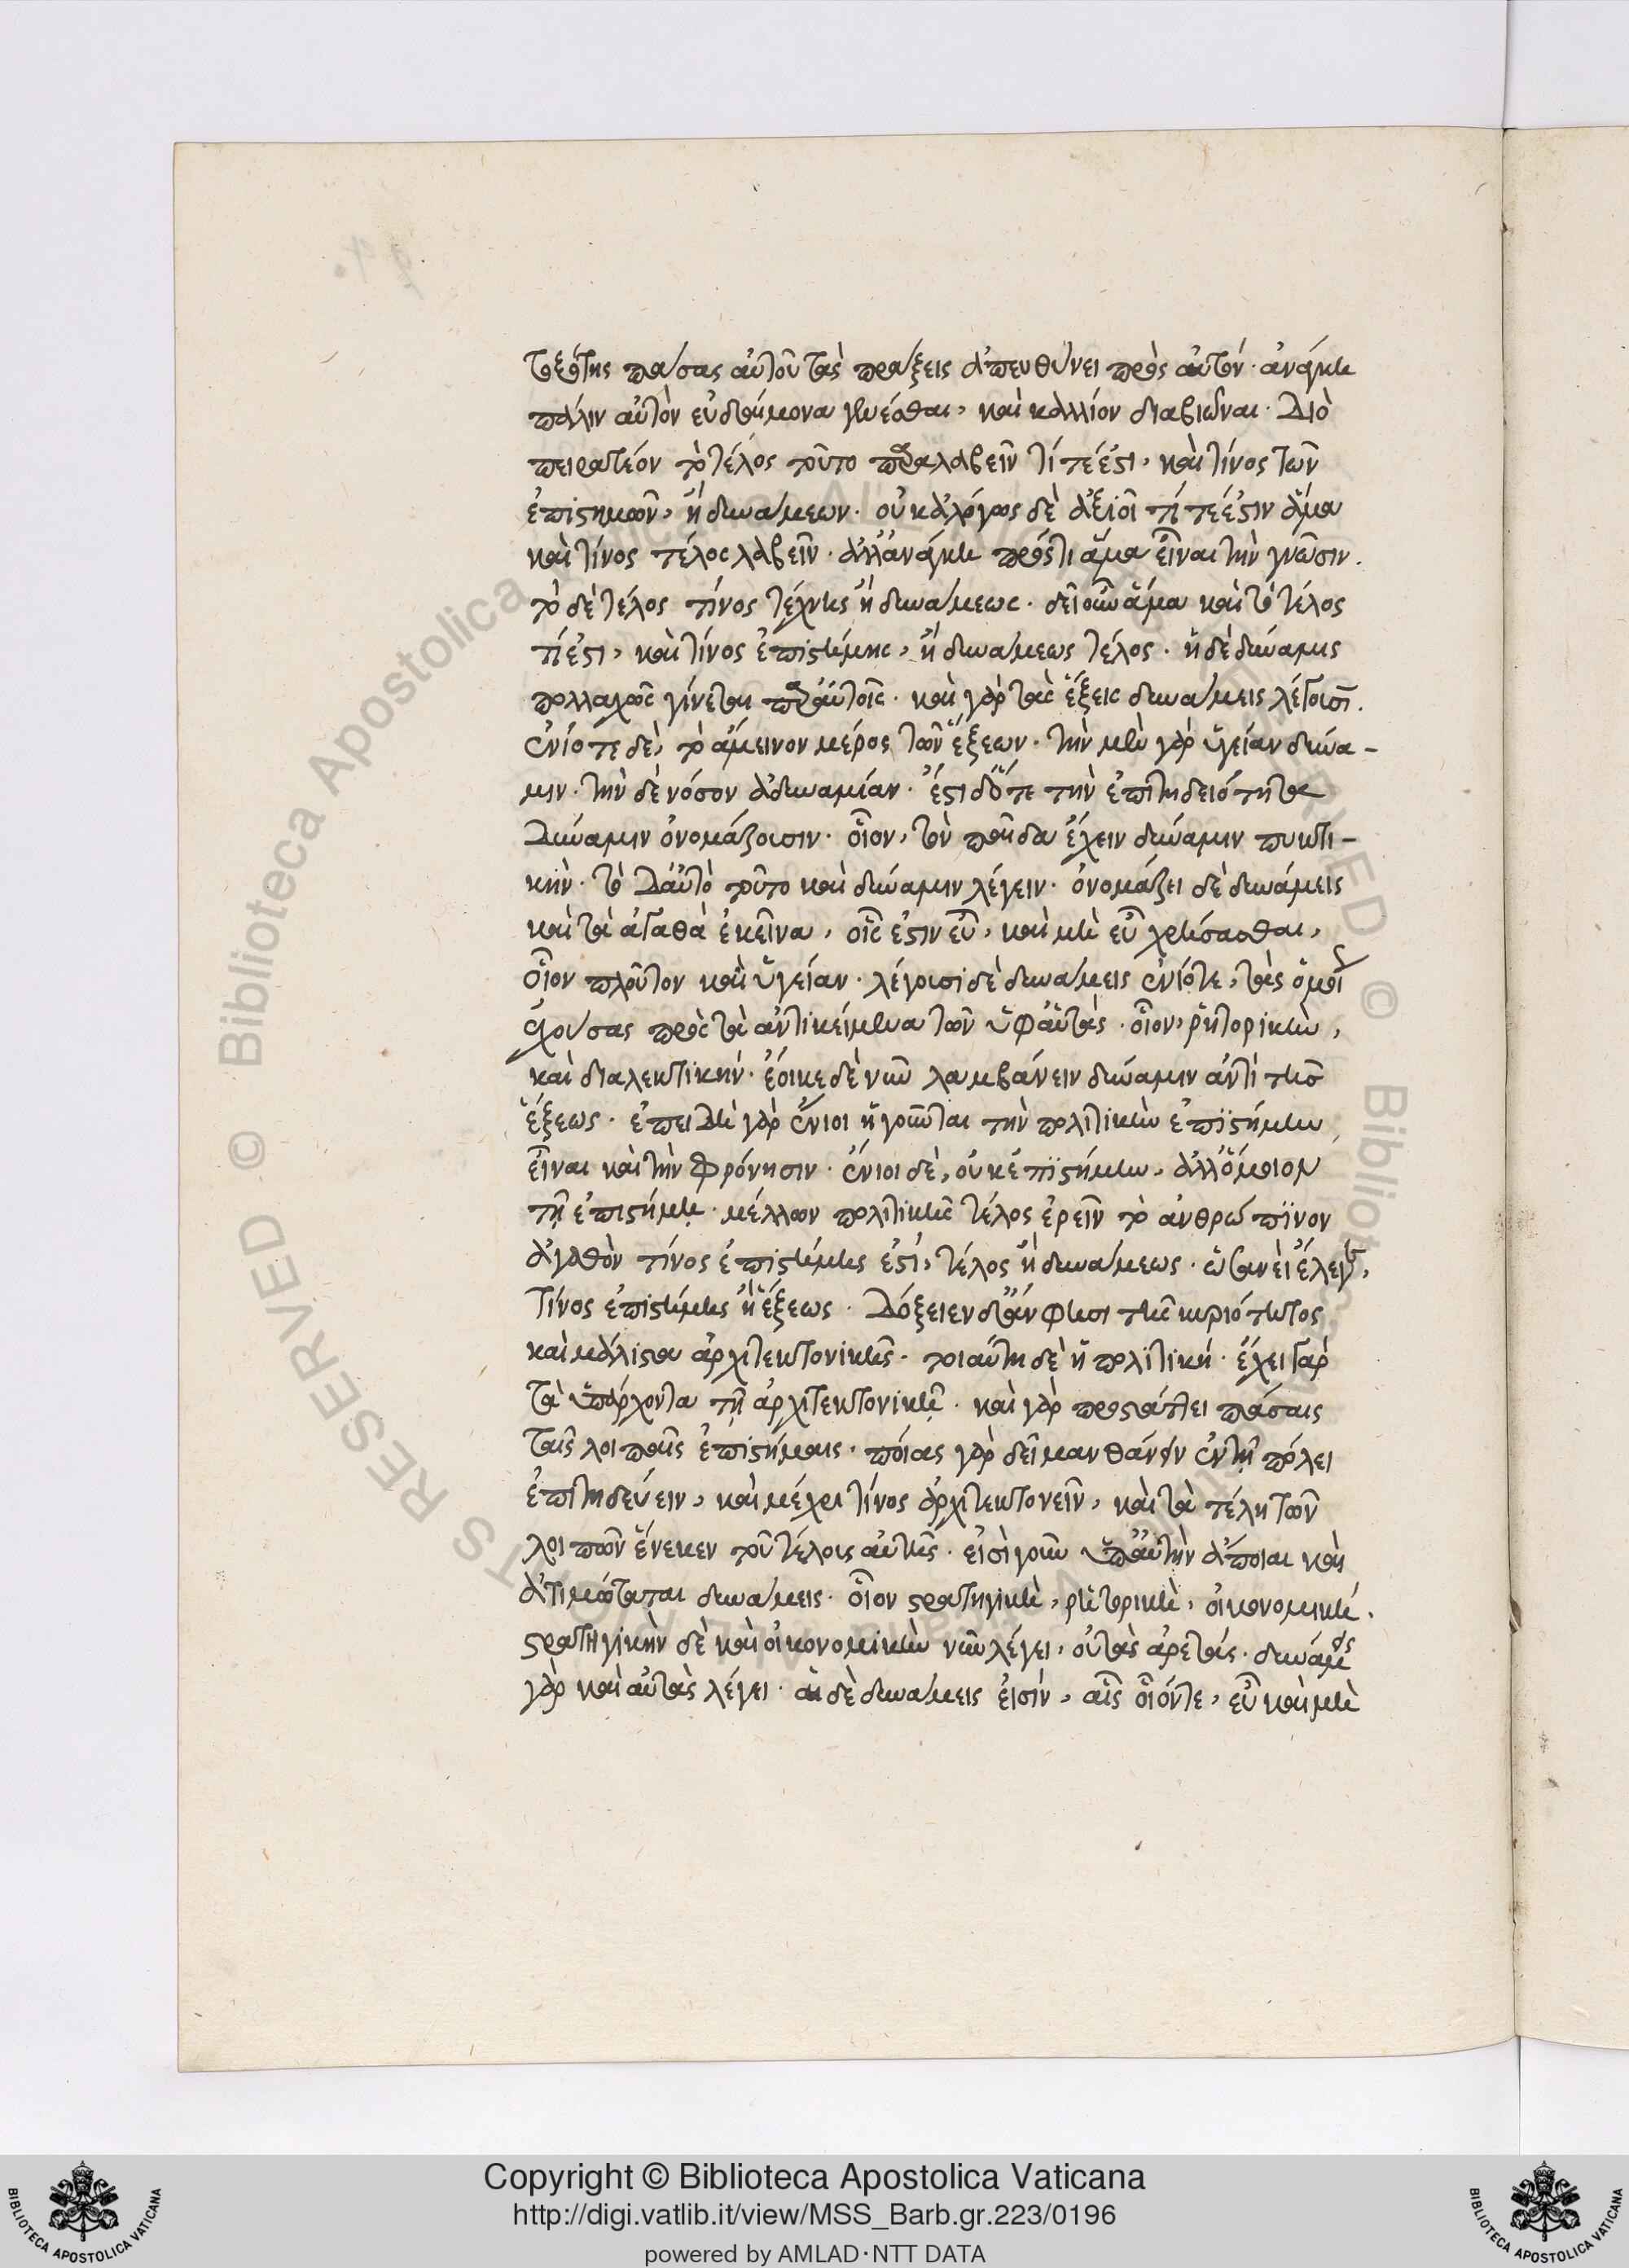 τοξότης πάσας αὐτοῦ τὰς πράξεις ἀπευθύνει πρὸς αὐτόν· ἀνάγκη
πάλιν αὐτὸν εὐδαίμονα γενέσθαι, καὶ κάλλιον διαβιῶναι· Διὸ
πειρατέον τὸ τέλος τοῦτο παραλαβεῖν τί τέ ἐστι, καὶ τίνος τῶν
ἐπιστημῶν, ἢ δυνάμεων· οὐκ ἀλόγως δὲ ἀξιοῖ τί τέ ἐστιν ἅμα
καὶ τίνος τέλος λαβεῖν· ἀλλ' ἀνάγκη πρός τι ἅμα εἶναι τὴν γνῶσιν.
τὸ δὲ τέλος τίνος τέχνης ἢ δυνάμεως· δεῖ οὖν ἅμα καὶ τὸ τέλος
τί ἐστι, καὶ τίνος ἐπιστήμης, ἢ δυνάμεως τέλος· ἡ δὲ δύναμις
πολλαχῶς γίνεται παρ' αὐτοῖς· καὶ γὰρ τὰς ἕξεις δυνάμεις λέγουσι.
ἐνίοτε δὲ, τὸ ἄμεινον μέρος τῶν ἕξεων· τὴν μὲν γὰρ ὑγείαν δύνα-
μιν· τὴν δὲ νόσον ἀδυναμίαν· ἔστι δ' ὅτε τὴν ἐπιτηδειότητα
Δύναμιν ὀνομάζουσιν· οἷον, τὸν παῖδα ἔχειν δύναμιν πυκτι-
κήν· τὸ Δ' αὐτὸ τοῦτο καὶ δύναμιν λέγειν· ὀνομάζει δὲ δυνάμεις
καὶ τὰ ἀγαθὰ ἐκεῖνα, οἷς ἐστιν εὖ, καὶ μὴ εὖ χρήσασθαι,
οἷον πλοῦτον καὶ ὑγείαν· λέγουσι δὲ δυνάμεις ἐνίοτε, τὰς ὁμοί
ἐχούσας πρὸς τὰ ἀντικείμενα τῶν ὑφ' αὑτάς· οἷον, ῥητορικὴν,
καὶ διαλεκτικήν· ἔοικε δὲ νῦν λαμβάνειν δύναμιν ἀντὶ τῆς
ἕξεως· ἐπειδὴ γὰρ ἔνιοι ἡγοῦνται τὴν πολιτικὴν ἐπιστήμην
εἶναι καὶ τὴν Φρόνησιν· ἔνιοι δὲ, οὐκ ἐπιστήμην, ἀλλ' ὅμοιον
τῇ ἐπιστήμῃ· μέλλων πολιτικῆς τέλος ἐρεῖν τὸ ἀνθρώπινον
ἀγαθὸν τίνος ἐπιστήμης ἐστί, τέλος ἢ δυνάμεως· ὡσανεὶ ἔλεγε,
τίνος ἐπιστήμης ἢ ἕξεως· Δόξειεν δ' ἄν φησι τῆς κυριότητος
καὶ μάλιστα ἀρχιτεκτονικῆς· τοιαύτη δὲ ἡ πολιτική· ἔχει γὰρ
τὰ ὑπάρχοντα τῇ ἀρχιτεκτονικῇ· καὶ γὰρ προστάττει πάσαις
ταῖς λοιπαῖς ἐπιστήμαις· ποίας γὰρ δεῖ μανθάνειν ἐν τῇ πόλει
ἐπιτηδεύειν, καὶ μέχρι τίνος ἀρχιτεκτονεῖν, καὶ τὰ τέλη τῶν
λοιπῶν ἕνεκεν τοῦ τέλους αὐτῆς· εἰσὶ γοῦν ὑπ' αὐτὴν ἅποιαι καὶ
ἀτιμώταται δυνάμεις· οἷον στρατηγικὴ, ρητορικὴ, οἰκονομική.
στρατηγικὴν δὲ καὶ οἰκονομικὴν νῦν λέγει, οὐ τὰς ἀρετάς· δυνάμεις
γὰρ καὶ αὐτὰς λέγει· αἱ δὲ δυνάμεις εἰσίν, αἷς οἷόν τε, εὖ καὶ μὴ
Copyright © Biblioteca Apostolica Vaticana
http://digi.vatlib.it/view/MSS_Barb.gr.223/0196
powered by AMLAD·NTT DATA